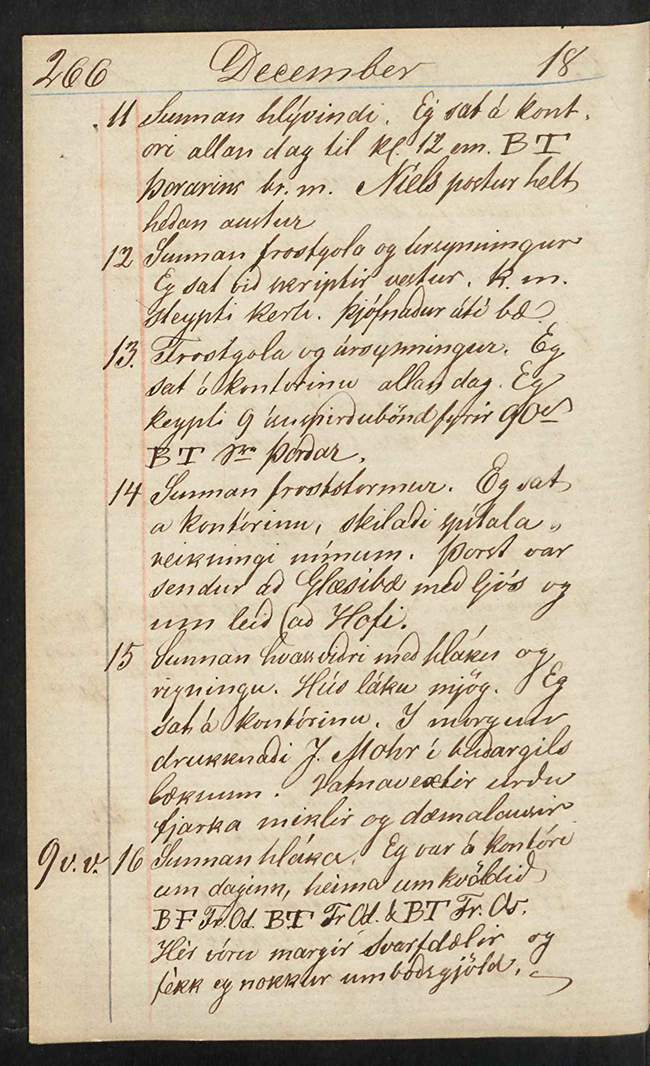 266 December 18
11 Sunnan hlývindi. Eg sat á kont-
óri allan dag til kl. 12 em. BT
Þorarins br. m. Níels postur helt
hedan austur
12 Sunnan frostgola og úrsynningur
Eg sat vid skriptir vestur. K. m.
steypti kerti. Þjófnadur úti bæ
13. Frostgola og úrsynningur. Eg
sat á kontórinu allan dag. Eg
keypti 9 fyrir 90
BT Þórdar.
14 Sunnan froststormur. Eg sat
a kontórinu, skiladi spítala-
reikningi mínum. Þorst var
sendur ad Glæsibæ med ljós og
um leid (ad Hofi.
15 Sunnan hvassvidri med hláku og
rigningu. Hús láku mjög. Eg
sat á kontórinu. I morgun
drukknadi J. Mohr i budargils
læknum. Vatnavextir urdu
fjarka miklir og dæmalausir
9 v. v. 16 Sunnan hláka. Eg var á kontóri
um daginn, heima um kvöldid
BF Fr. Od. BT Fr Od. & BT Fr. Os.
Hér vóru margir Svarfdælir og
fékk eg nokkur umbodsgjöld.